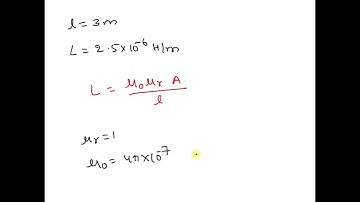 l = 3m
L = 2.5×10⁻⁶ H/m
L = μ₀ μᵣ A / l
μᵣ = 1
μ₀ = 4π×10⁻⁷